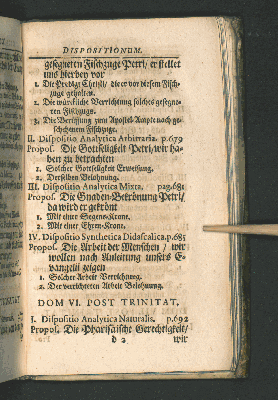 DISPOSITIONUM.
geſegneten Fiſchzuge Petri/ er ſtellet
uns hierbey vor
1. Die Predigt Chriſti/ die er vor dieſem Fiſch-
zuge gehalten.
2. Die würckliche Verrichtung ſolches geſegne-
ten Fiſchzugs.
3. Die Beruffung zum Apoſtel-Ampte nach ge-
ſchehenem Fiſchzuge.
II. Dispoſitio Analytica Arbitraria. p.679
Propoſ. Die Gottſeligkeit Petri/ wir ha-
ben zu betrachten
1. Solcher Gottſeligkeit Erweiſung.
2. Derſelben Belohnung.
III. Dispoſitio Analytica Mixta. pag.681
Propoſ. Die Gnaden-Bekrönung Petri/
da wird er gekrönt
1. Mit einer Segens-Krone.
2. Mit einer Ehren-Krone.
IV. Dispoſitio Synthetica Didaſcalica. p.685
Propoſ. Die Arbeit der Menſchen / wir
wollen nach Anleitung unſers E-
vangelii zeigen
1. Solcher Arbeit Verrichtung.
2. Der verrichteten Arbeit Belohnung.
DOM VI. POST TRINITAT.
I. Dispoſitio Analytica Naturalis. p.692
Propoſ. Die Phariſäiſche Gerechtigkeit/
d 2 wir